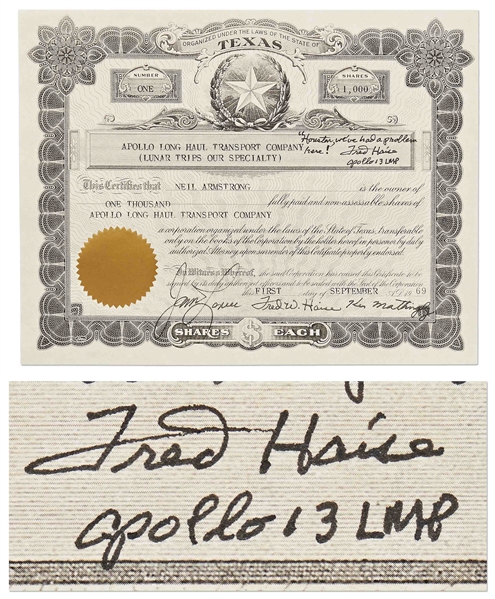 ORGANIZED UNDER THE LAWS OF THE STATE OF
TEXAS
NUMBER
ONE
SHARES
1,000
APOLLO LONG HAUL TRANSPORT COMPANY
(LUNAR TRIPS OUR SPECIALTY)
"Houston, we've had a problem
here!
Fred Haise
apollo 13 LMP
This Certifies that NEIL ARMSTRONG is the owner of
ONE THOUSAND fully paid and non-assessable shares of
APOLLO LONG HAUL TRANSPORT COMPANY
a corporation organized under the laws of the State of Texas, transferable
only on the books of the Corporation by the holder hereof in person or by duly
authorized Attorney upon surrender of this Certificate properly endorsed.
In Witness Whereof, the said Corporation has caused this Certificate to be
signed by its duly authorized officers and to be sealed with the Seal of the Corporation
this FIRST SEPTEMBER 69
Fred Haise Ken Mattingly
SHARES $ EACH
Fred Haise
apollo 13 LMP